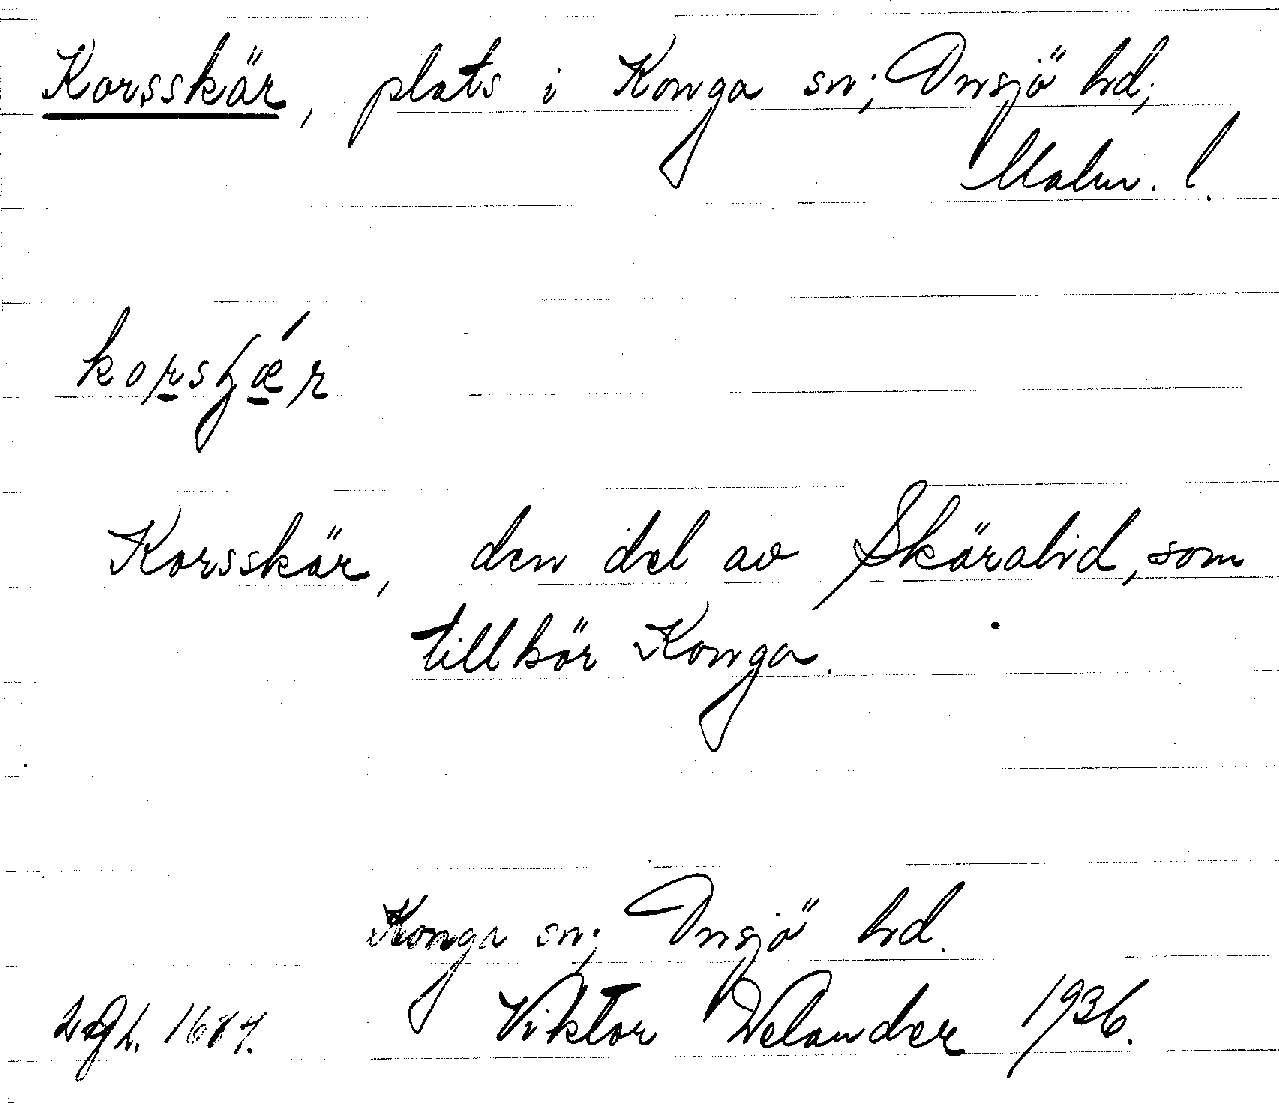 Korsskär, plats i Konga sn; Onsjö hd;
Malm. l.
korsʃǽr
Korsskär, den del av Skäralid, som
tillhör Konga.
Konga sn; Onsjö hd.
Viktor Welander 1936.